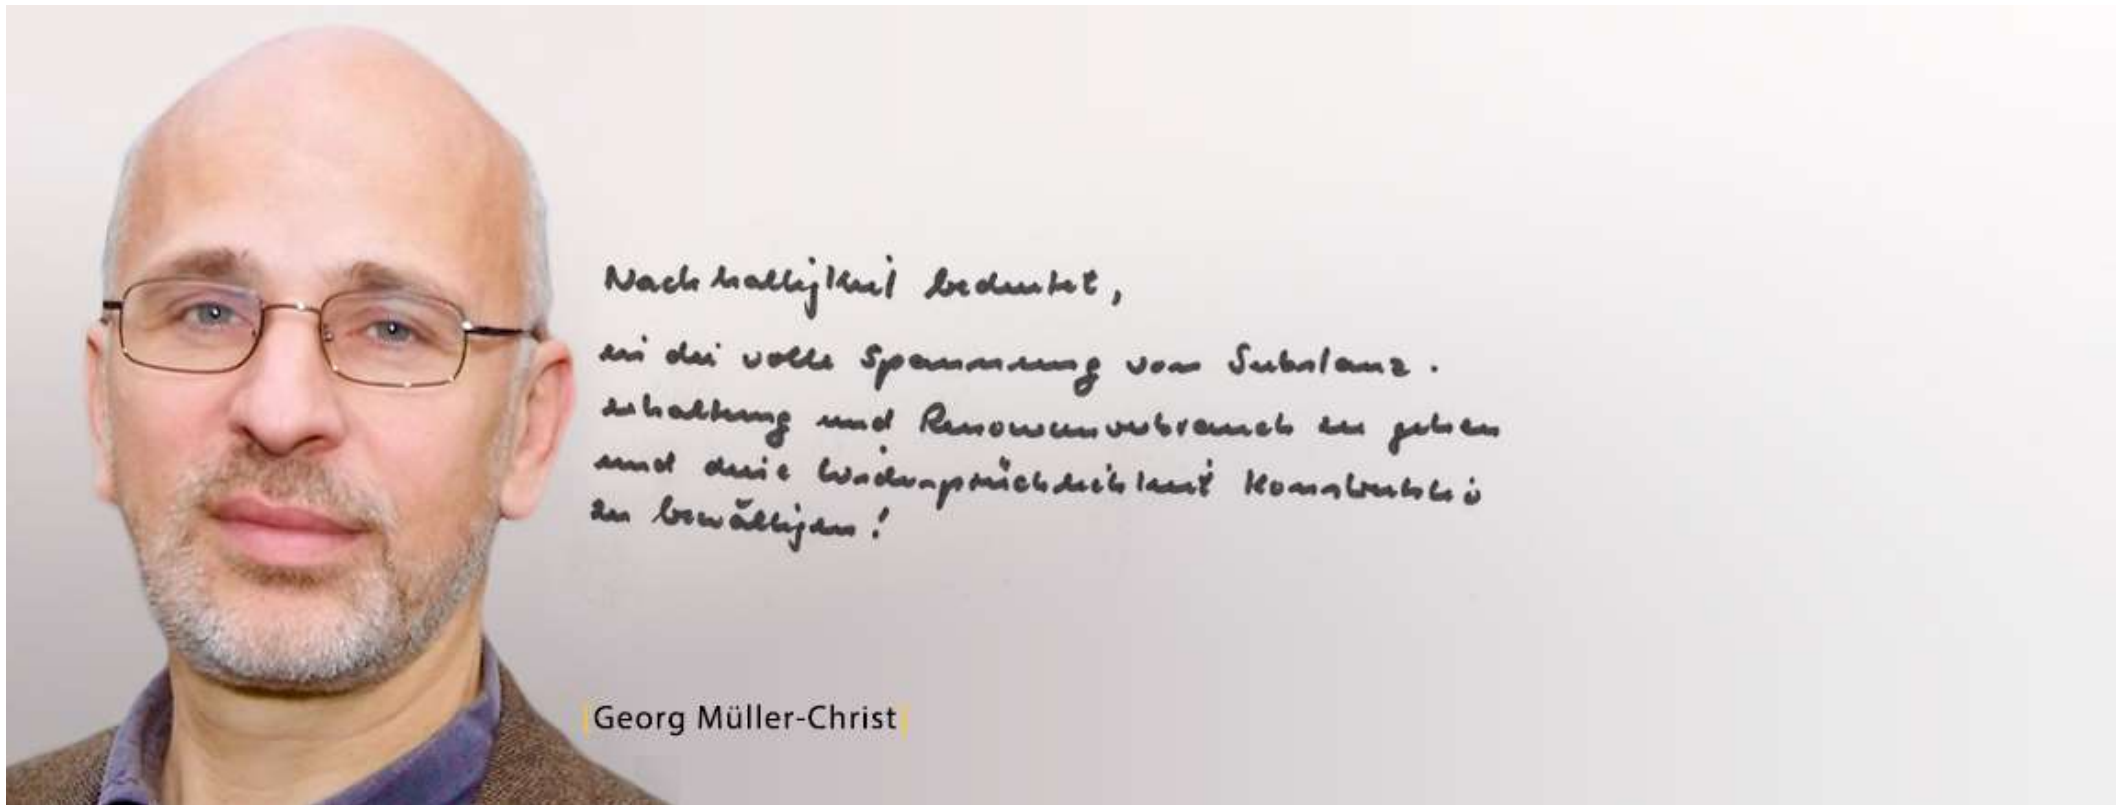 Nachhaltigkeit bedeutet,
in die volle Spannung von Substanz-
erhaltung und Ressourcenverbrauch zu gehen
und diese Widersprüchlichkeit konstruktiv
zu bewältigen!
[Georg Müller-Christ]